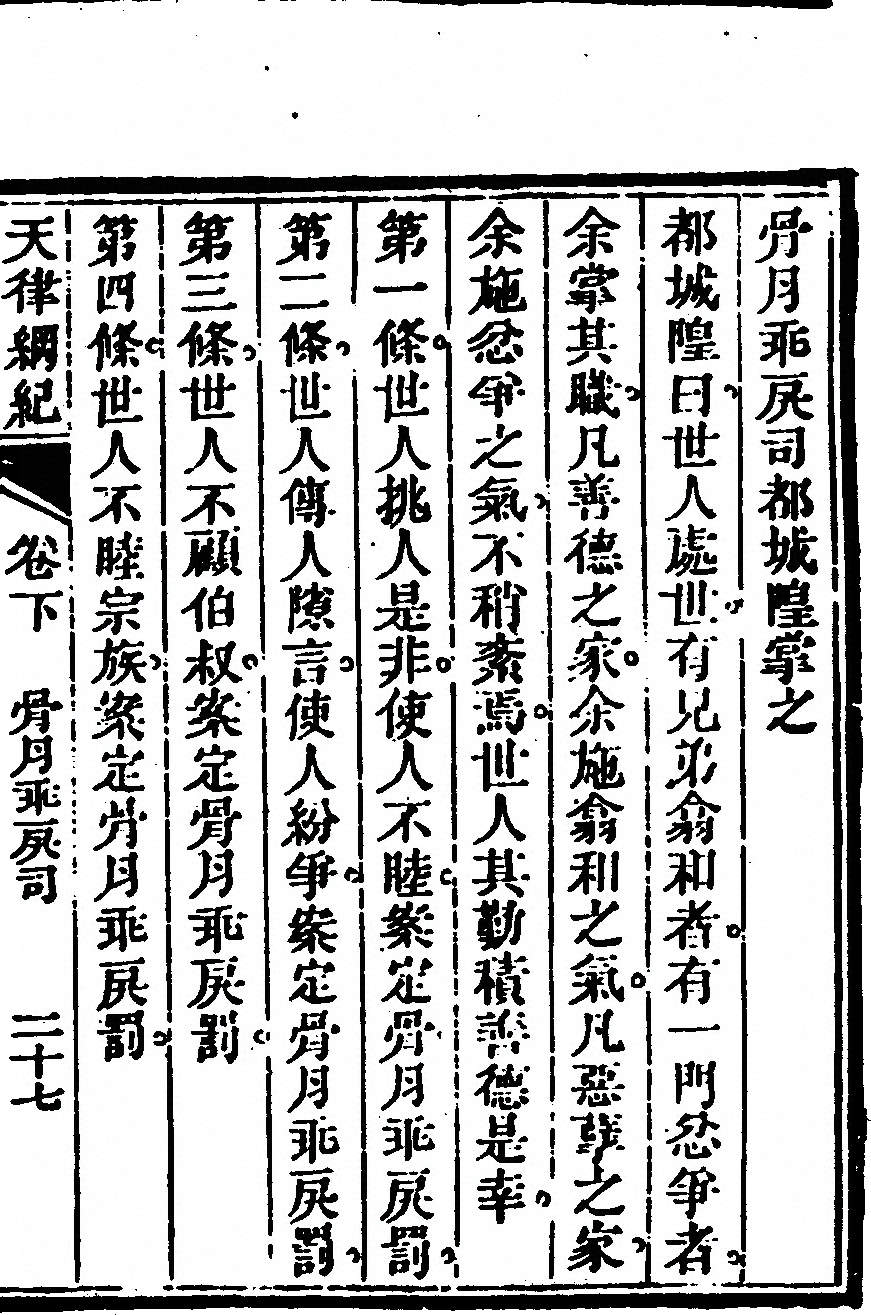 骨月乖戾司都城隍掌之
都城隍曰世人處世有兄弟翕和者。有一門忿爭者。
余掌其職。凡善德之家。余施翕和之氣。凡惡孽之家。
余施忿爭之氣。不稍紊焉。世人其勤積善德是幸。
第一條。世人挑人是非。使人不睦。案定骨月乖戾罰。
第二條。世人傳人隙言。使人紛爭。案定骨月乖戾罰。
第三條。世人不顧伯叔。案定骨月乖戾罰。
第四條。世人不睦宗族。案定骨月乖戾罰。
天律綱紀 卷下 骨月乖戾司 二十七